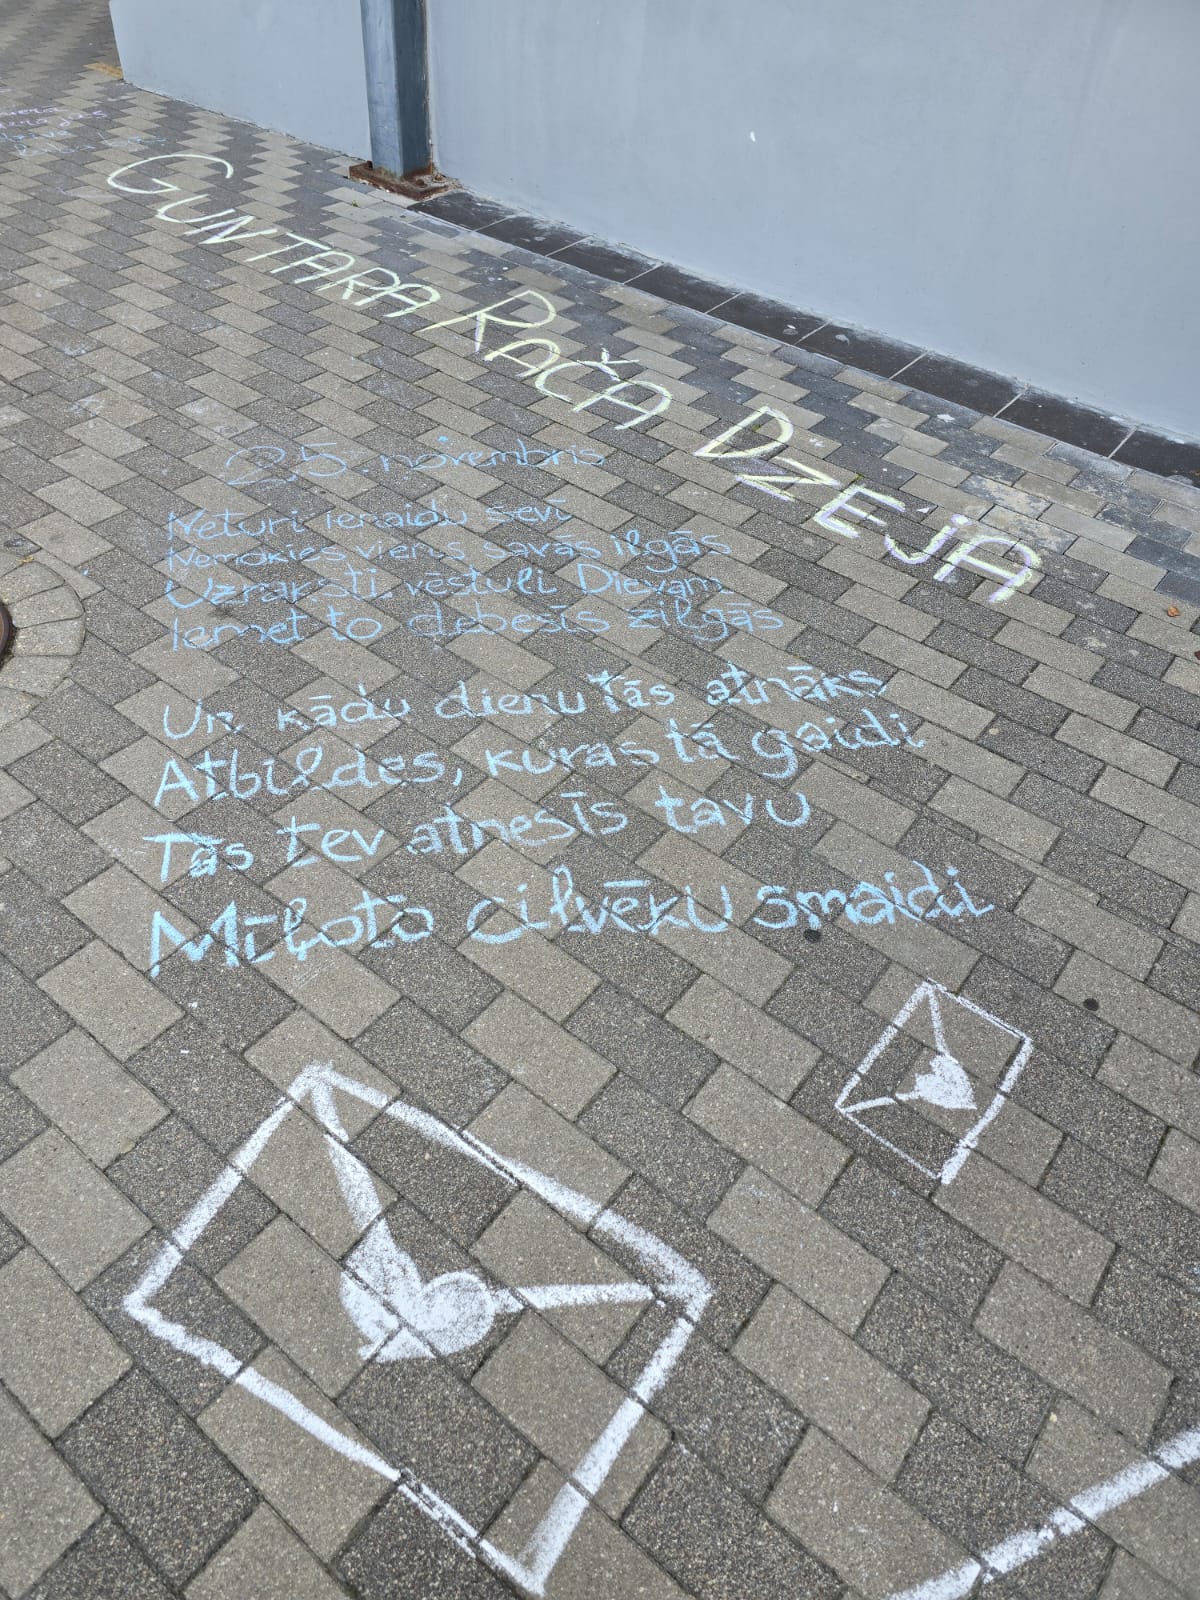 GUNTARA RAČA DZEJA
25. novembris
Neturi ienaidu sevī
Nemokies vienos savās ilgās
Uzraksti vēstuli Dievam
Iemet to debesīs zilgās
Un kādu dienu tās atnāks
Atbildes, kuras tā gaidi
Tās tev atnesīs tavu
Mīļoto cilvēku smaidi